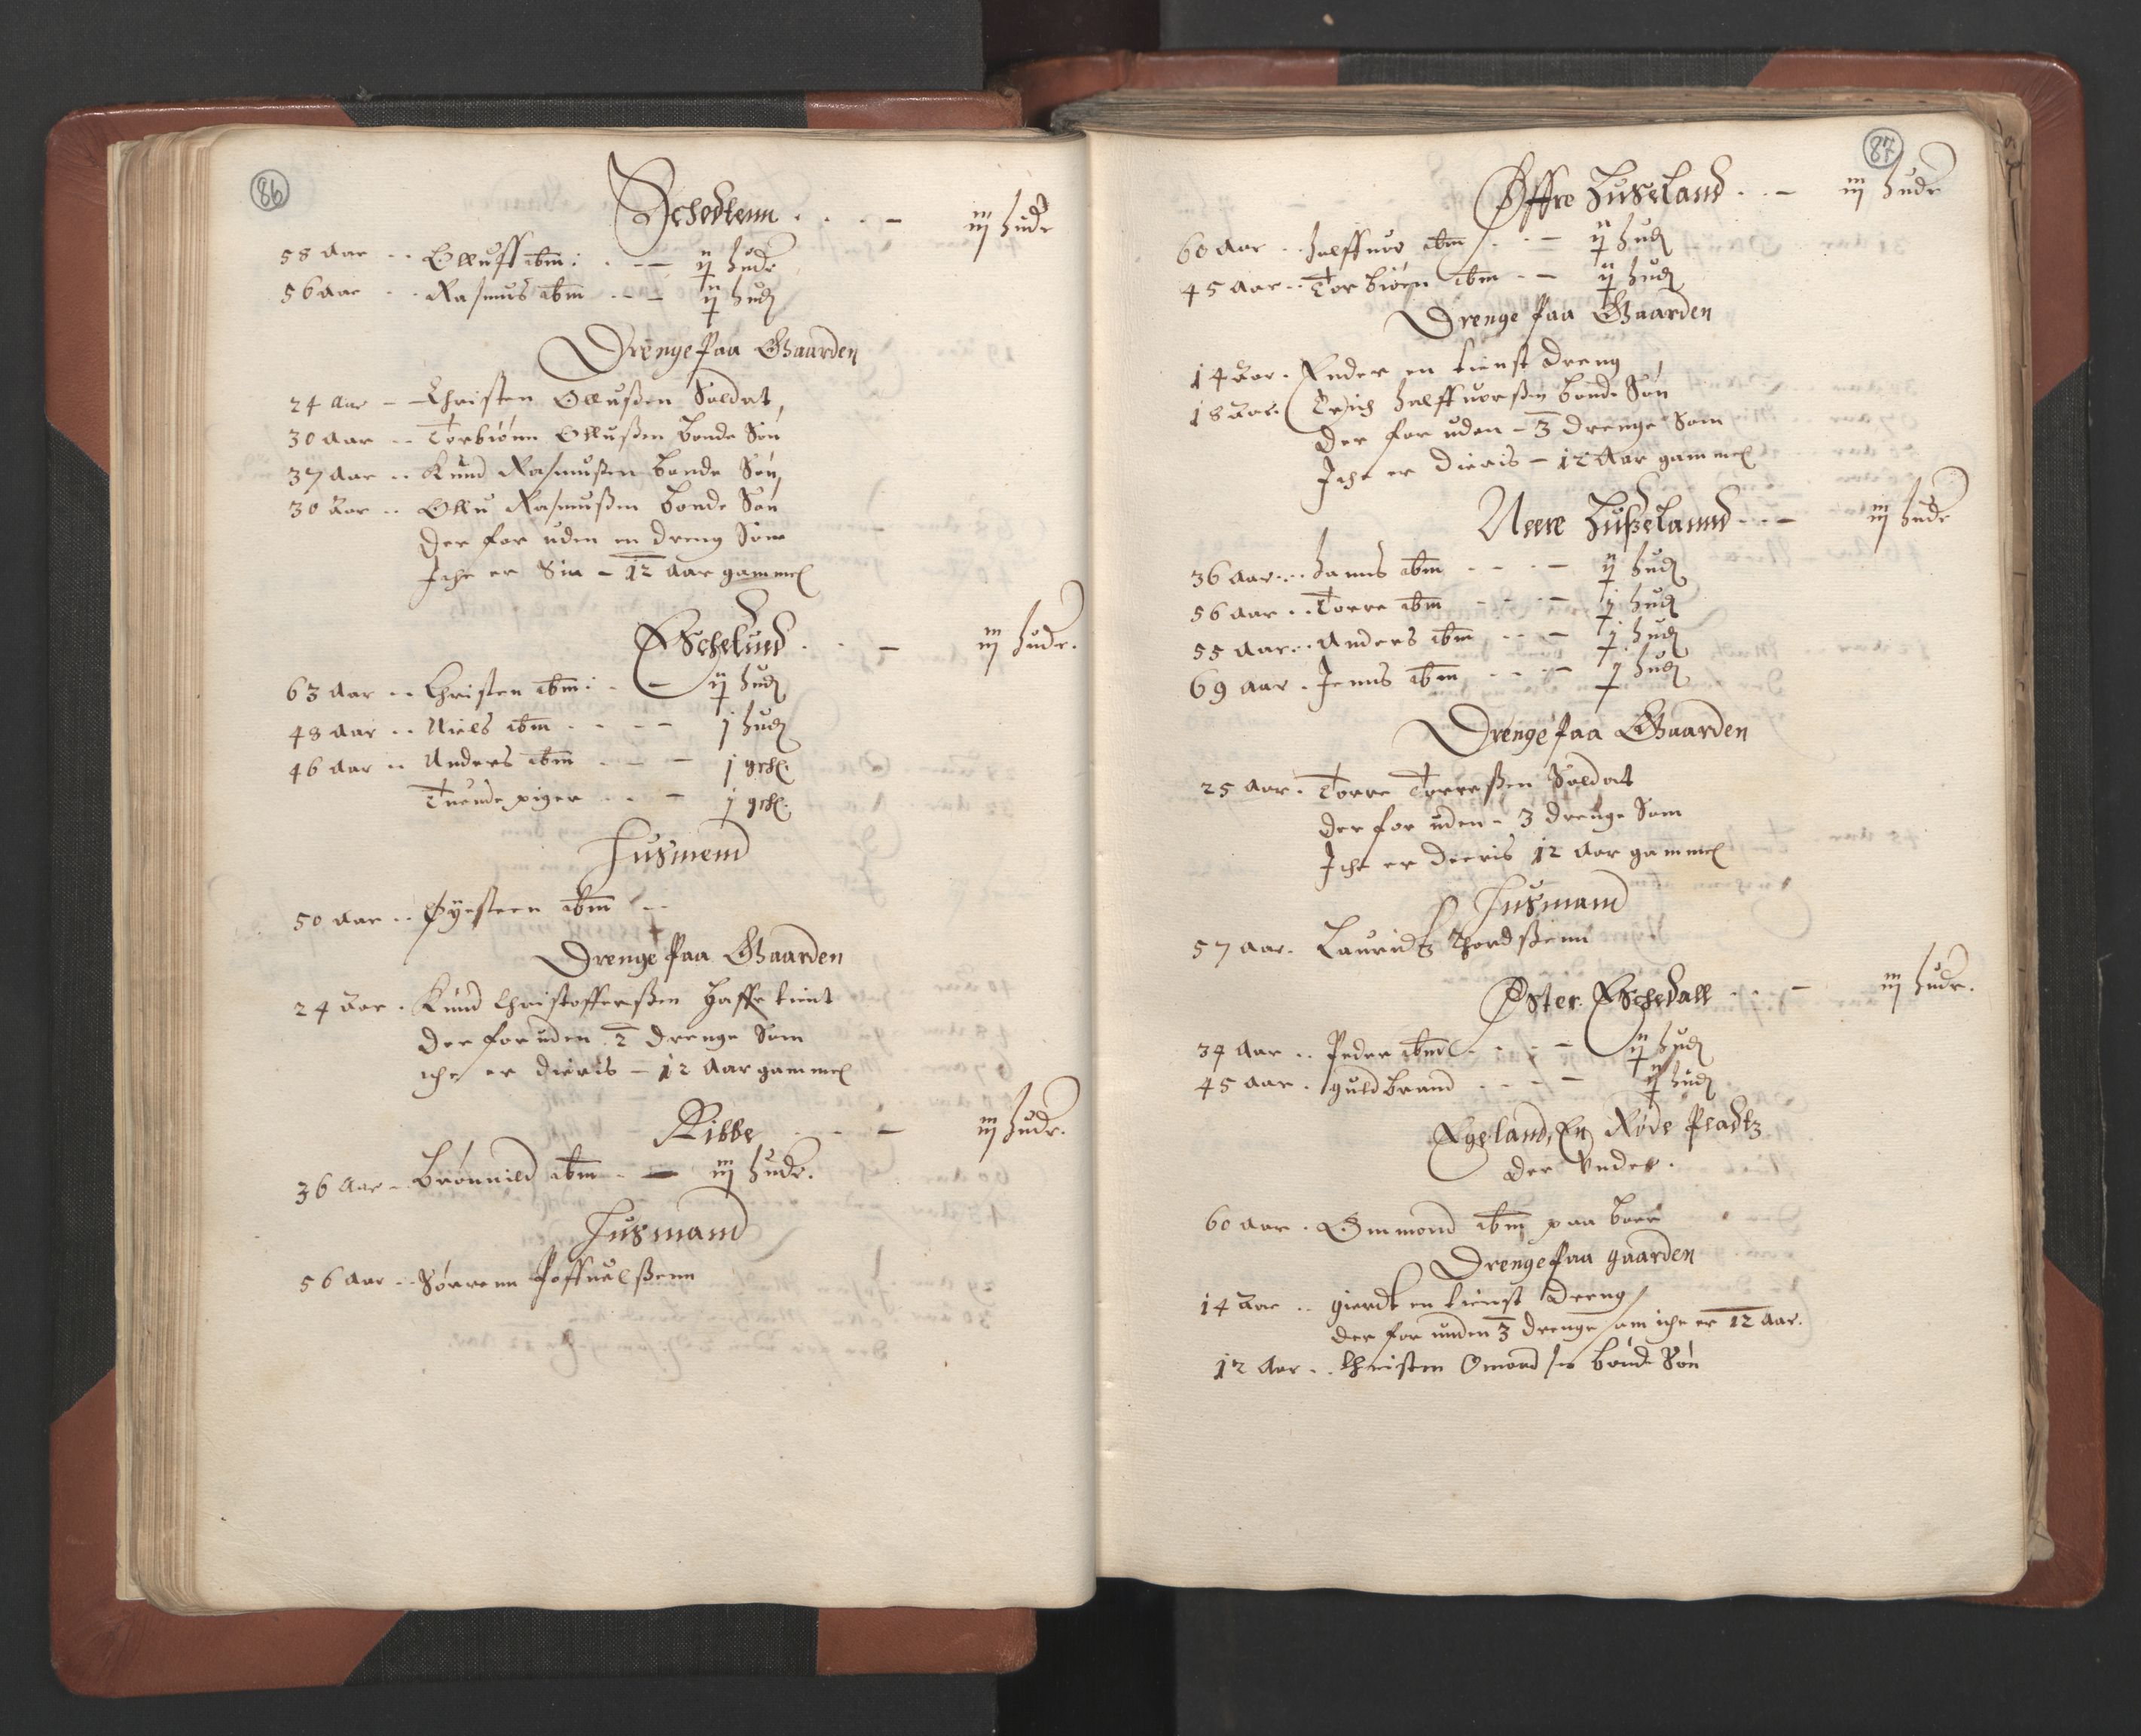 86
Schedtenn . . . – iiij hudr
58 Aar .. Olluff ibm: . . – ij hudr
56 Aar .. Rasmus ibm . . – ij hud
Drenge paa Gaarden
24 Aar – Christen Ollußen Soldat,
30 Aar .. Torbiønn Ollußen bonde Søn
37 Aar .. Knud Rasmußen bonde Søn,
30 Aar .. Ollu Rasmußen bonde Søn
der for uden en dreng Som
Iche er Sin – 12 Aar gammel
Eschelund . . . – iiij hudr.
63 Aar .. Christen ibm: . – ij hud
48 Aar .. Niels ibm . . . – j hud
46 Aar .. Anders ibm . . . – j
Tuende piger . . – j
Husmend
50 Aar .. Øysteen ibm ..
Drenge paa Gaarden
24 Aar . Knud Christofferßen
der for uden 2 drenge Som
iche er dieris – 12 Aar gammel
Ribbe . . – iiij hudr.
36 Aar .. Brønnild ibm . – iiij hudr.
Husmand
56 Aar .. Sørrenn Poffuelßenn
87
Øffre Huseland . . – iiij hudr
60 Aar .. Halffuor ibm . . – ij hud
45 Aar .. Torbiørn ibm . – ij hud
Drenge paa Gaarden
14 Aar . Ender en tienst dreng
18 Aar. Erich Halffuorßen bonde Søn
der for uden – 3 drenge Som
Iche er dieris – 12 Aar gammel
Neere Hußelannd . . – iiij hudr
36 Aar ... Hanns ibm . . . – ij hud
56 Aar .. Torre ibm . . . – j hud
55 Aar ... Anders ibm . . – j hud
69 Aar . Jenns ibm . . . – j hud
Drenge paa Gaarden
25 Aar . Torre Torreßen Soldat
der for uden – 3 drenge Som
Iche er dieris 12 Aar gammel
Husmand
57 Aar. Lauridtz Thordßenn
Øster Eschedall . . . – iiij hudr.
34 Aar .. Peder ibm . . . – ij hud
45 Aar . Guldbrand . . . – ij hud
Egeland, En Røde Pladtz
der Under.
60 Aar . Ommond ibm paa
Drenge paa gaarden
14 Aar .. gierdt en tienst dreng
der for unden 3 drenge som iche er 12 Aar.
12 Aar .. Christen Omondsen bonde Søn